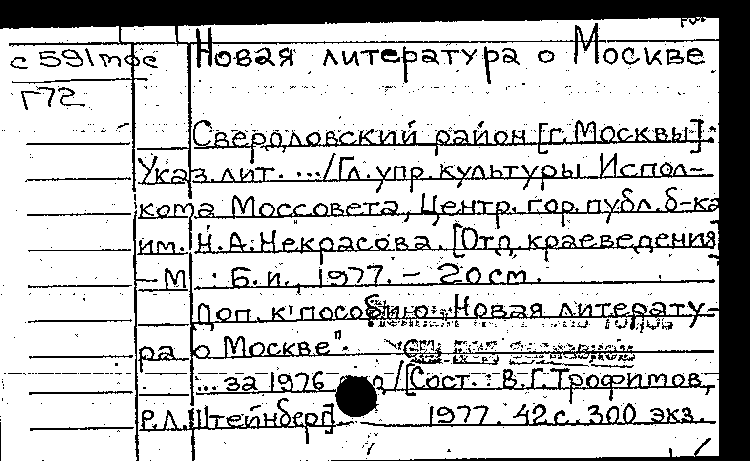 с 591мос Новая литература о Москве
Г72
Свердловский район [г. Москвы]:
Указ. лит. .../Гл. упр. культуры Испол-
кома Моссовета, Центр. гор. публ. б-ка
им. Н.А. Некрасова. [Отд. краеведения]
— М : Б. и., 1977. – 20 см.
Доп. к пособию „Новая литерату-
ра о Москве".
... за 1976 /[Сост.: В.Г. Трофимов,
Р.Л. Штейнберг]. 1977. 42 с. 300 экз.